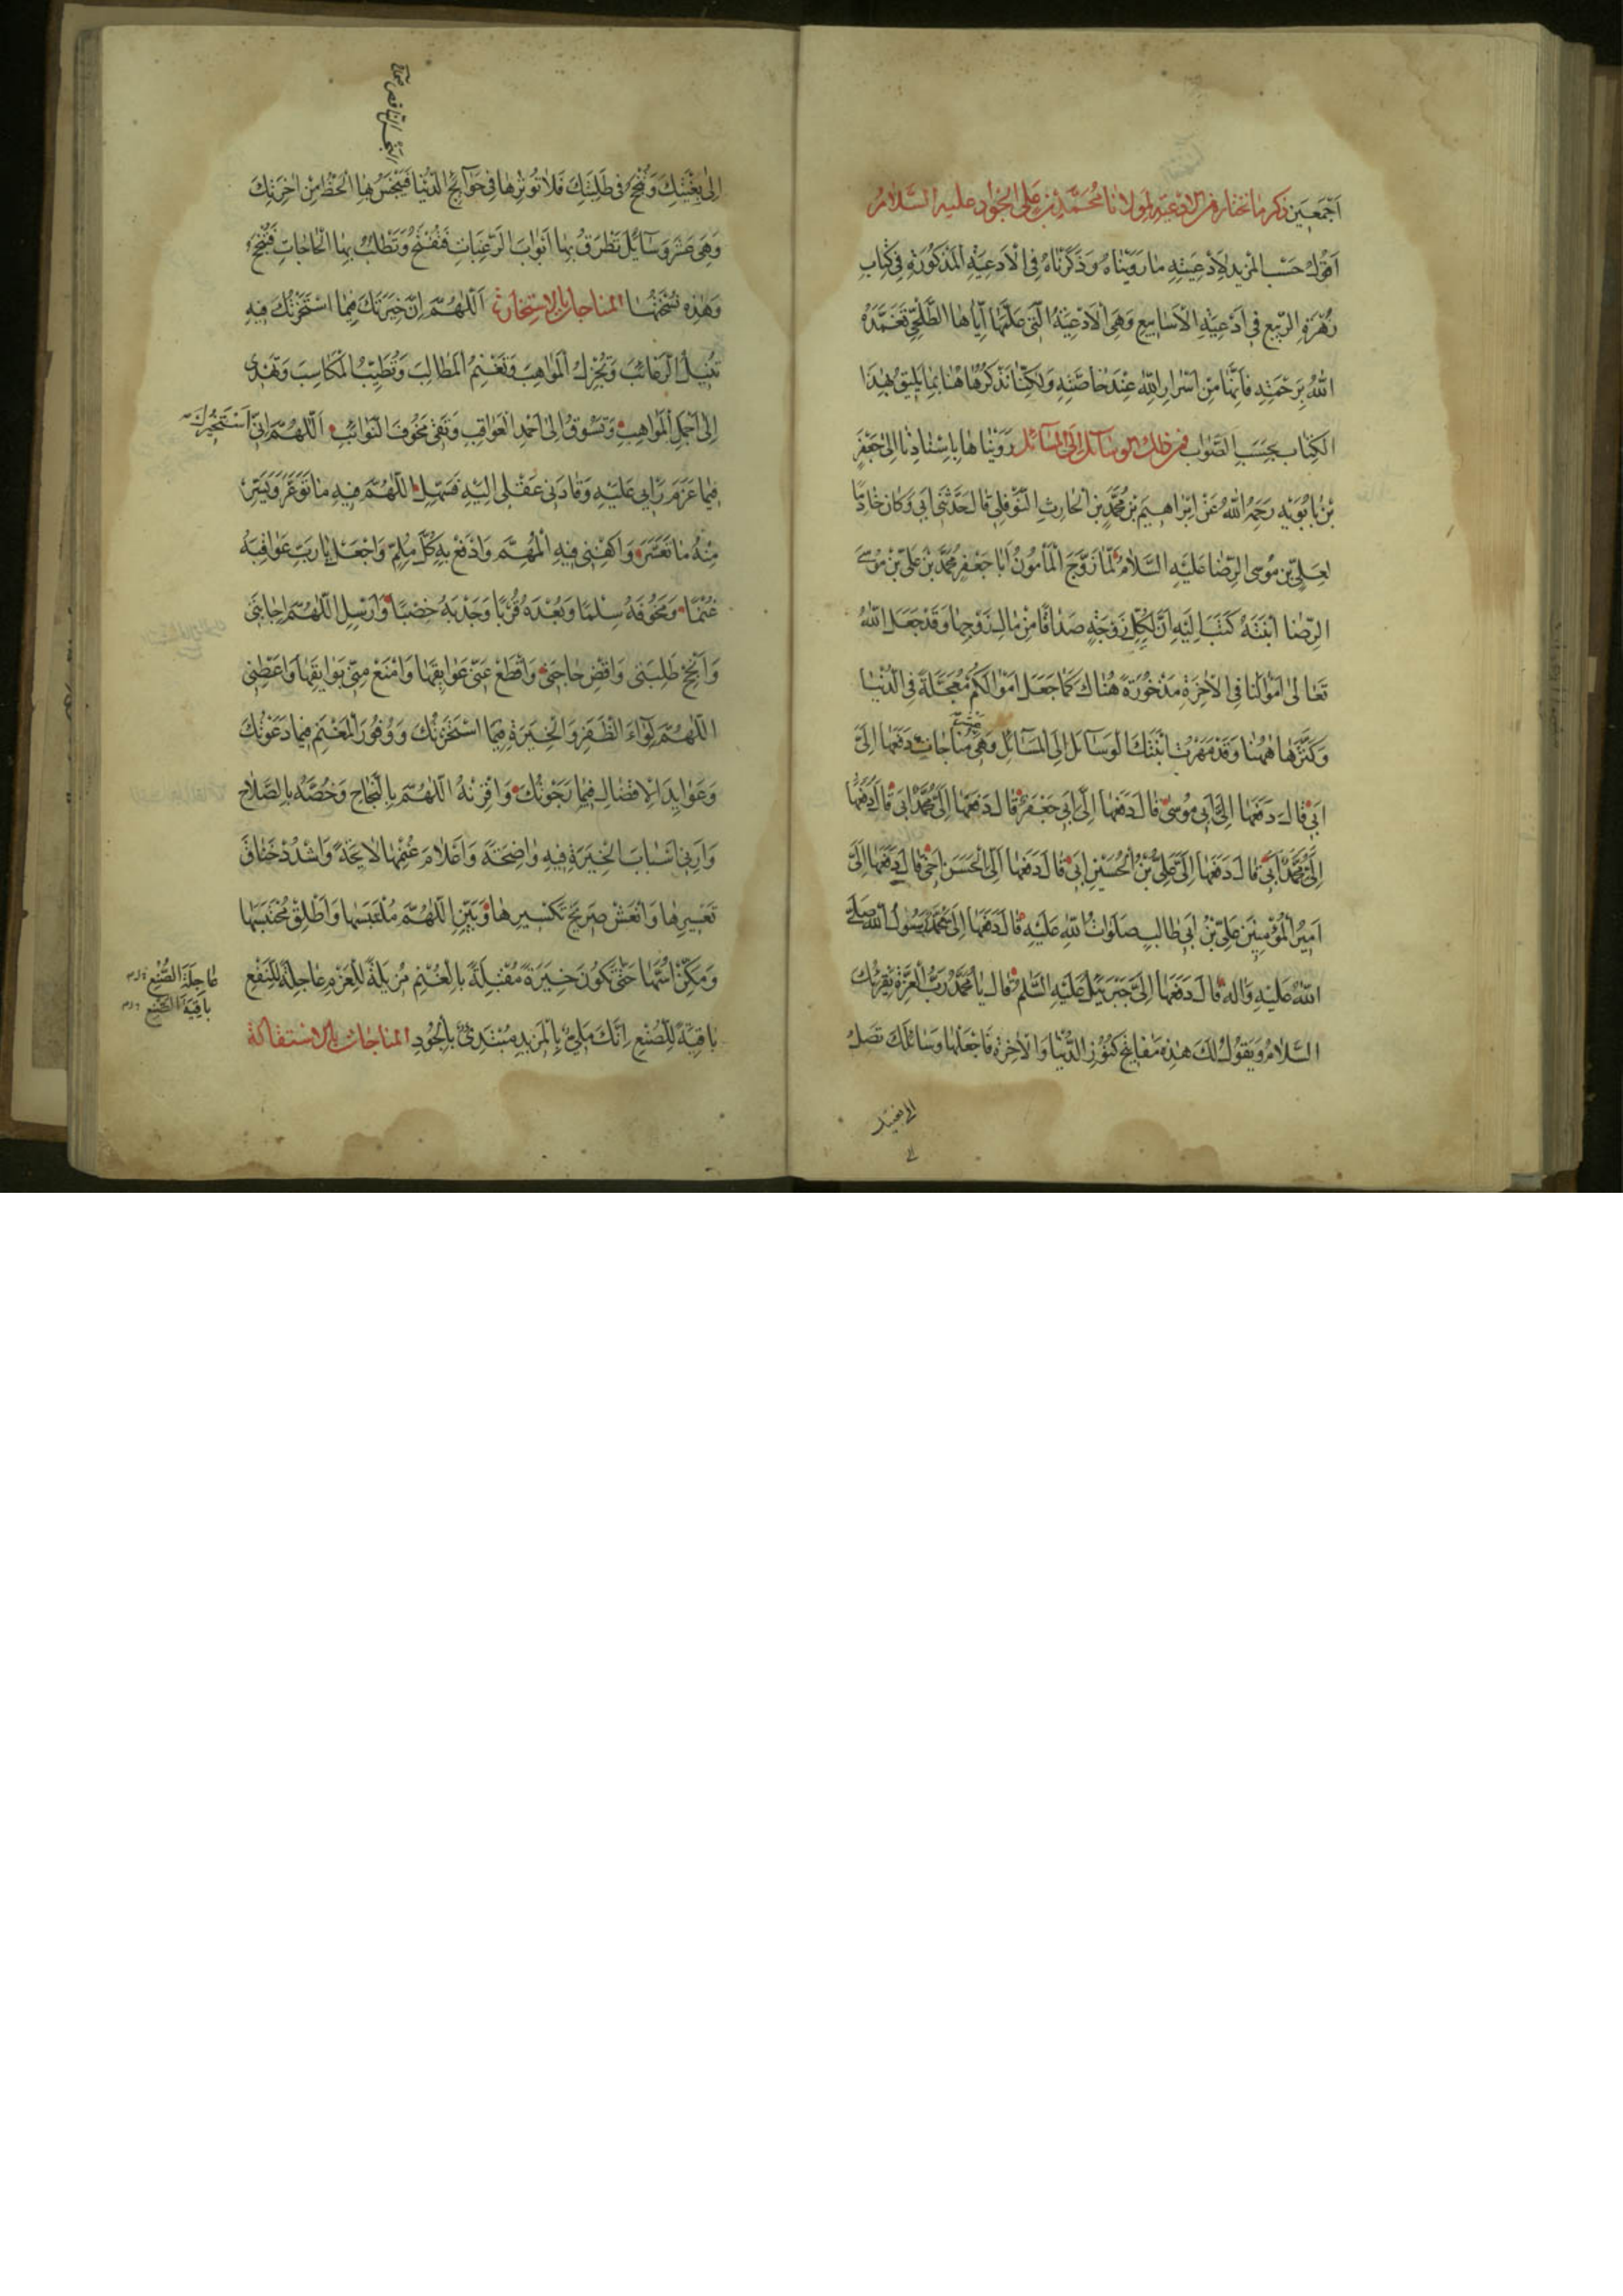 اَجْمَعينَ ذكر ما نختاره من الادعية لمولانا مُحَمَّد بن عَلى الجواد عليه السَّلامُ
اَقُولُ حَسْب المُريد لِاَدْعِيَتِهِ ما رَوَيْناهُ وَذَكَرْناهُ فِى الْاَدْعِيَةِ الْمَذْكُورَةِ فى كِتابِ
زُهْرَةِ الرَّبيعِ فى اَدْعِيَةِ الْاَسابيعِ وَهِىَ الْاَدْعِيَةُ الَّتى عَلَّمَها اَيّاها الطَّلْحِىَّ تَغَمَّدَهُ
اللّٰهُ بِرَحْمَتِهِ فَاِنَّها مِنْ اَسْرارِ اللّٰهِ عِنْدَ خاصَّتِهِ وَلكِنّا نَذْكُرُ هاهُنا بِما يَليقُ بِهذَا
الكِتاب بِحَسَبِ الصَّواب فمن ذلك الوسائل الى المسائل رَوَيْناها بِاِسْنادِنا اِلى جَعْفَرِ
بْنِ بابُوَيْهِ رَحِمَهُ اللّٰهُ عَنْ اِبْراهيمَ بْنِ مُحَمَّدِ بْنِ الْحارِثِ النَّوْفَلِىِّ قالَ حَدَّثَنى اَبى وَكانَ خادِمًا
لِعَلِىِّ بْنِ مُوسَى الرِّضا عَلَيْهِ السَّلامُ لَمّا زَوَّجَ الْمَأْمُونُ اَبا جَعْفَرٍ مُحَمَّدَ بْنَ عَلىِّ بْنِ مُوسَى
الرِّضا ابْنَتَهُ كَتَبَ اِلَيْهِ اَنَّ لِكُلِّ زَوْجَةٍ صَداقًا مِنْ مالِ زَوْجِها وَقَدْ جَعَلَ اللّٰهُ
تَعالى اَمْوالَنا فِى الْاٰخِرَةِ مَذْخُورَةً هُناكَ كَما جَعَلَ اَمْوالَكُمْ مُعَجَّلَةً فِى الدُّنْيا
وَكَنَزَها هٰهُنا وَقَدْ مَهَرْتُ ابْنَتَكَ الْوَسائِلَ اِلَى الْمَسائِلِ وَهِىَ مُناجاتٌ دَفَعَها اِلَىَّ
اَبى قالَ دَفَعَها اِلَىَّ اَبى مُوسى قالَ دَفَعَها اِلَىَّ اَبى جَعْفَرٌ قالَ دَفَعَها اِلَىَّ مُحَمَّدٌ اَبى قالَ دَفَعَها
اِلَىَّ مُحَمَّدٌ اَبى قالَ دَفَعَها اِلَىَّ عَلِىُّ بْنُ الْحُسَيْنِ اَبى قالَ دَفَعَها اِلَى الْحَسَن اَخى قالَ دَفَعَها اِلَىَّ
اَميرُ الْمُؤْمِنينَ عَلِىُّ بْنُ اَبى طالِبٍ صَلَواتُ اللّٰهِ عَلَيْهِ قالَ دَفَعَها اِلَىَّ مُحَمَّدٌ رَسُولُ اللّٰهِ صَلَّى
اللّٰهُ عَلَيْهِ وَالِه قالَ دَفَعَها اِلَىَّ جَبْرَئيلُ عَلَيْهِ السَّلم قالَ يا مُحَمَّدُ رَبُّ الْعِزَّةِ يُقْرِئُكَ
السَّلامُ وَيَقُولُ لَكَ هذِهِ مَفاتيحُ كُنُوزِ الدُّنْيا وَالْاٰخِرَةِ فَاجْعَلْها وَسائِلَكَ تَصِلُ
الى بغيتك
اِلى بُغْيَتِكَ وَتُنْجَحُ فى طَلِبَتِكَ فَلا تُؤْثِرْها فى حَوائِجِ الدُّنْيا فَتَبْخَسَ بِهَا الْحَظَّ مِنْ اٰخِرَتِكَ
وَهِىَ عَشْرُ وَسائِلَ تَطْرَقُ بِها اَبْوابَ الرَّغَباتِ فَتُفْتَحُ وَتَطْلُبُ بِها الْحاجاتِ فَتُنْجَحُ
وَهٰذِهِ نُسْخَتُها المناجات بالاستخارة اَللّٰهُمَّ اِنَّ خِيَرَتَكَ فيمَا اسْتَخَرْتُكَ فيهِ
تُنيلُ الرَّغائِبَ وَتُجْزِلُ الْمَواهِبَ وَتُغْنِمُ الْمَطالِبَ وَتُطَيِّبُ الْمَكاسِبَ وَتَهْدى
اِلى اَجْمَلِ الْمَواهِبِ وَتَسُوقُ اِلى اَحْمَدِ الْعَواقِبِ وَتَقى مَخُوفَ النَّوائِبِ اَللّٰهُمَّ اِنّى اَسْتَخيرُكَ
فيما عَزَمَ رَأْيى عَلَيْهِ وَقادَنى عَقْلى اِلَيْهِ فَسَهِّلِ اللّٰهُمَّ فيهِ ما تَوَعَّرَ وَيَسِّرْ
مِنْهُ ما تَعَسَّرَ وَاكْفِنى فيهِ الْمُهِمَّ وَادْفَعْ بِهِ كُلَّ مُلِمٍّ وَاجْعَلْ يا رَبِّ عَواقِبَهُ
غُنْمًا وَمَخُوفَهُ سِلْمًا وَبُعْدَهُ قُرْبًا وَجَدْبَهُ خِصْبًا وَاَرْسِلِ اللّٰهُمَّ اِجابَتى
وَاَنْجِحْ طَلِبَتى وَاقْضِ حاجَتى وَاقْطَعْ عَنّى عَوائِقَها وَامْنَعْ مِنّى بَوائِقَها وَاَعْطِنى
اللّٰهُمَّ لِواءَ الظَّفَرِ وَالْخِيَرَةِ فيمَا اسْتَخَرْتُكَ وَوُفُورَ الْمَغْنَمِ فيما دَعَوْتُكَ
وَعَوايِدَ الْاِفْضالِ فيما رَجَوْتُكَ وَاقْرِنْهُ اللّٰهُمَّ بِالنَّجاحِ وَخُصَّهُ بِالصَّلاحِ
وَاَرِنى اَسْبابَ الْخِيَرَةِ فيهِ واضِحَةً وَاَعْلامَ غُنْمِها لائِحَةً وَاشْدُدْ خِناقَ
تَعْسيرِها وَانْعَشْ صَريخَ تَكْسيرِها وَبَيِّنِ اللّٰهُمَّ مُلْتَبَسَها وَاَطْلِقْ مُحْتَبَسَها
وَمَكِّنْ اُسَّها حَتّى تَكُونَ خِيَرَةً مُقْبِلَةً بِالْغُنْمِ مُزيلَةً لِلْغُرْمِ عاجِلَةً لِلنَّفْعِ
عاجِلَةَ الصُّنْعِ
باقِيَةَ الصُّنْعِ
باقِيَةً لِلصُّنْعِ اِنَّكَ مَلِىٌّ بِالْمَزيدِ مُبْتَدِئٌ بِالْجُودِ المناجات بالاستقالة